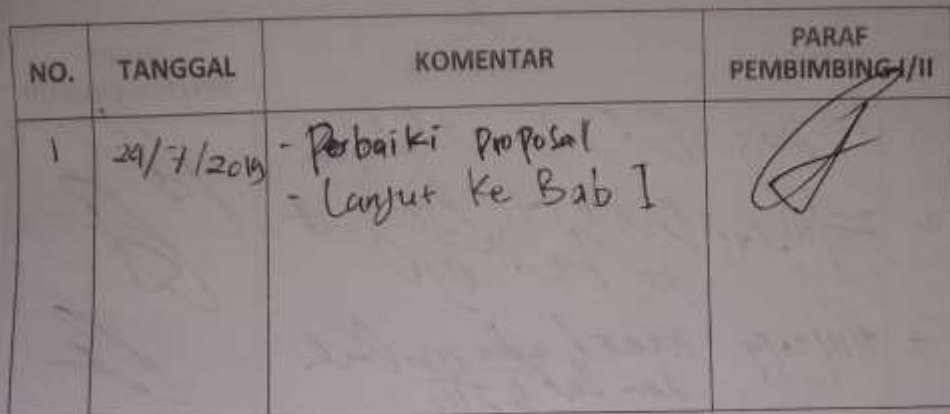 NO. TANGGAL KOMENTAR PARAF
PEMBIMBING I/II
1 29/7/2019 - Perbaiki Proposal
- Lanjut Ke Bab I